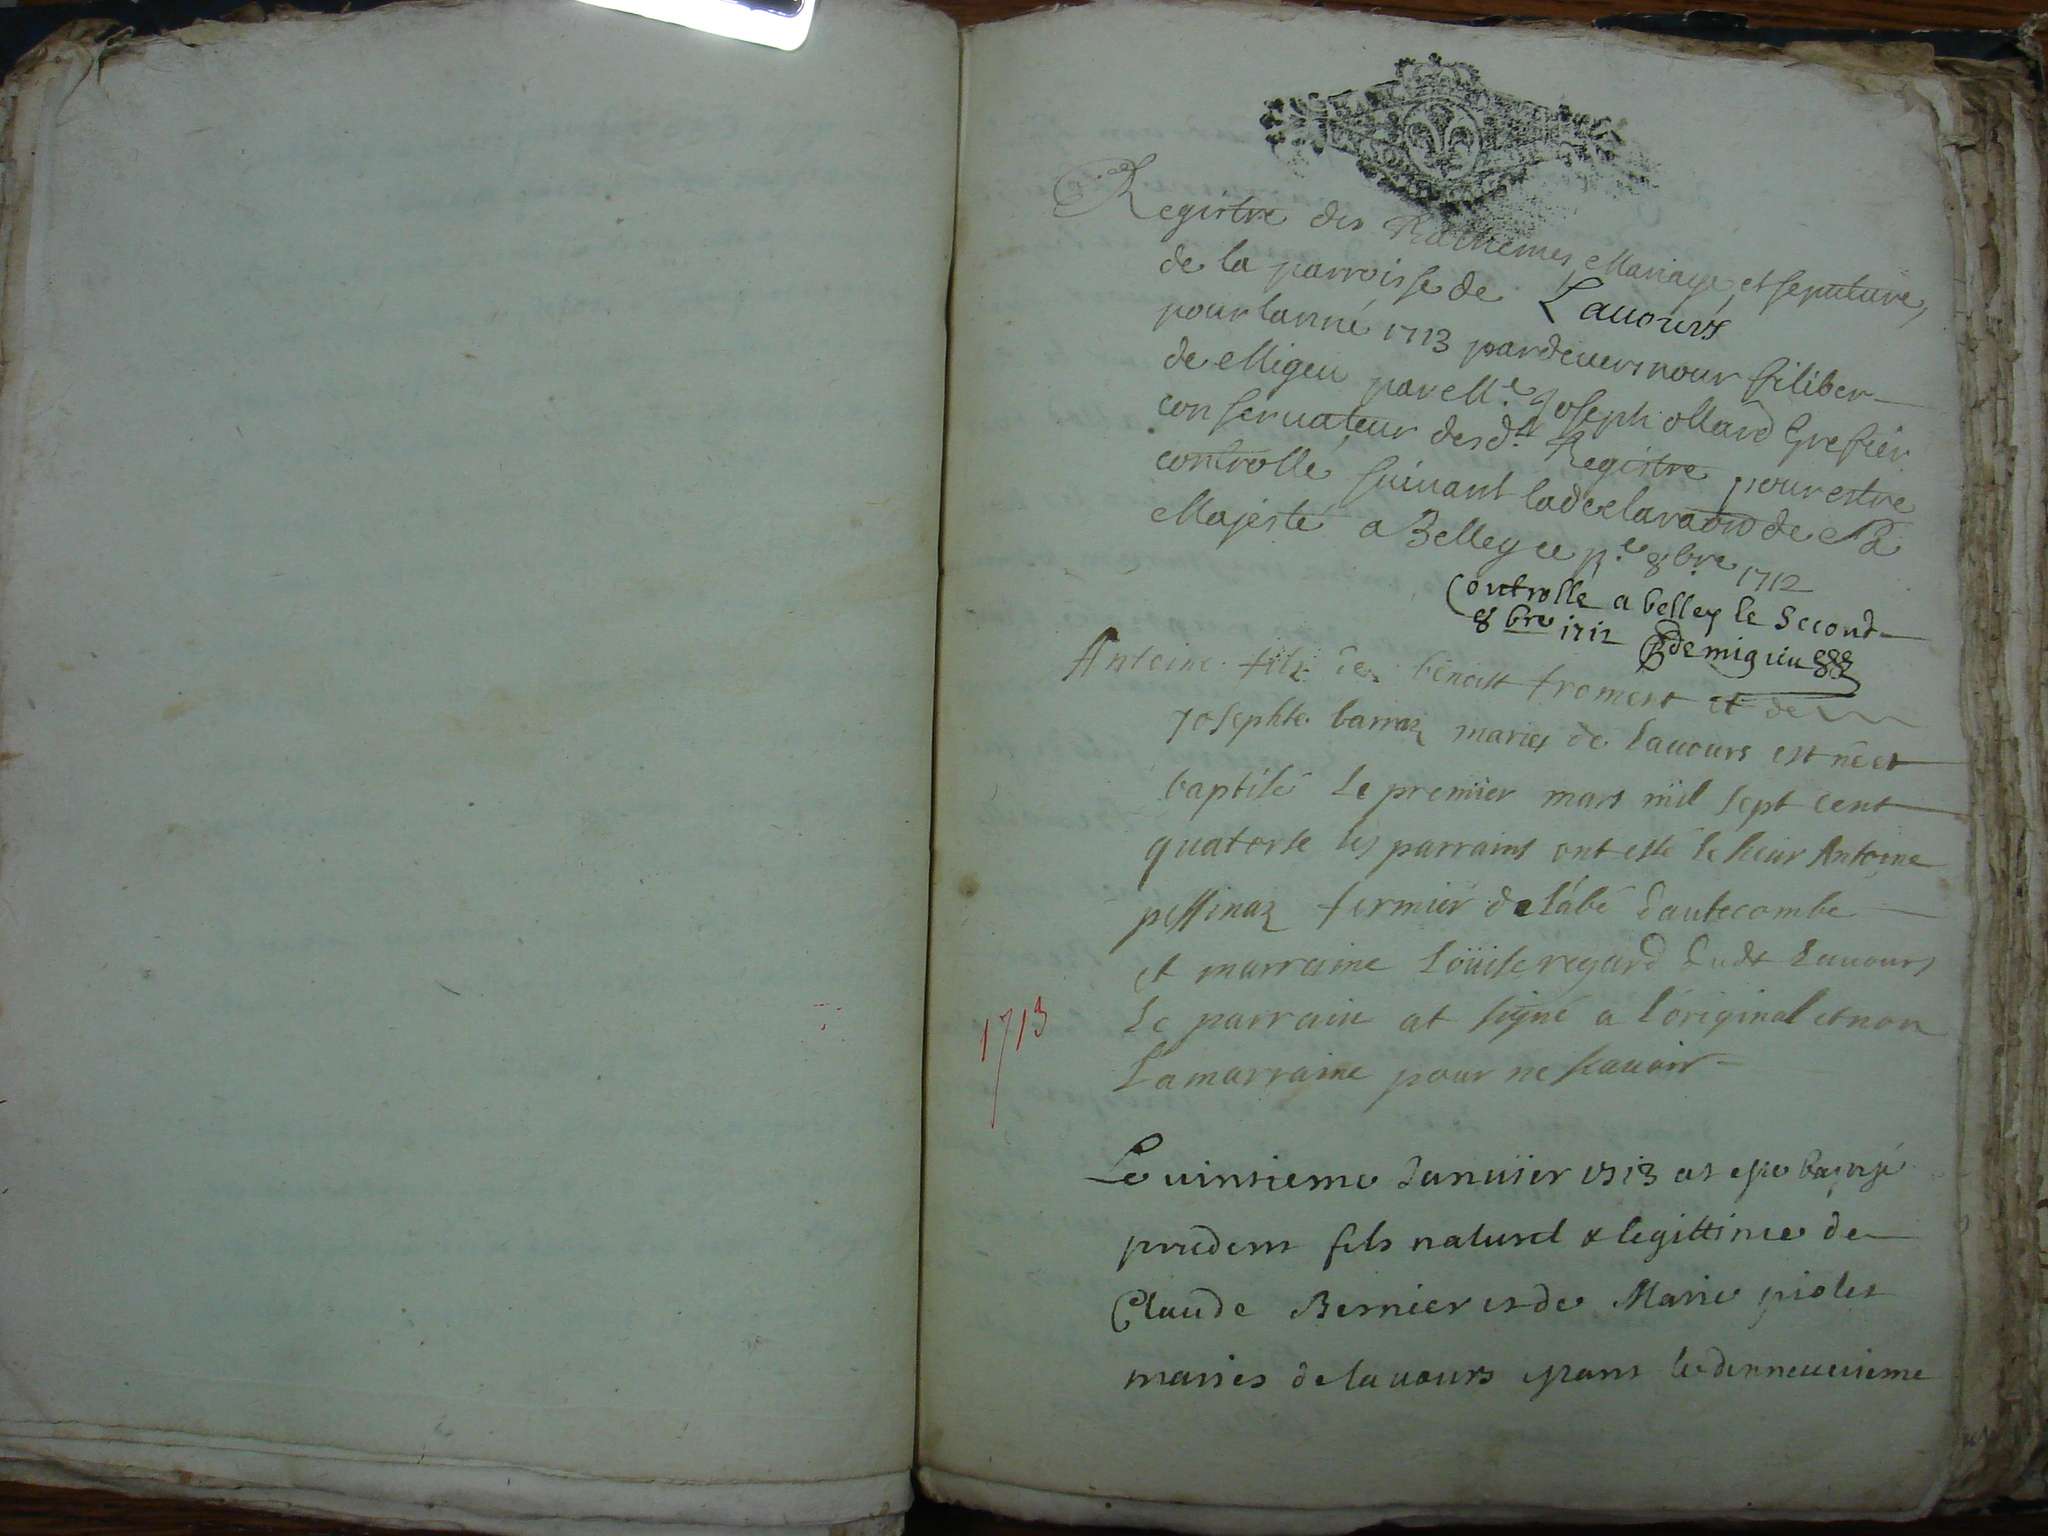 Registre des Batthemes Mariage et sepulture,
de la parroisse de Lauours
pour lanné 1713 pardeuers nour filiber
de Migeu par Me Joseph ollard Grefier
conseruateur desd. Registre pour estre
controllé suiuant ladeclaraōn de sa
Majesté a Belley ce pr.e 8bre 1712
Controlle a belley le Second
8bre 1712 demigieu
Antoine filz de benoist froment et de
Josephte barraz maries de lauours est né et
baptisé le premier mars mil sept cent
quatorse les parrains ont esté le sieur Antoine
pessinaz fermier de l'abé dautecombe
et marraine Loüise regard dudt Lauours
le parrain at signé a l'original et non
la marraine pour ne scauoir
1713
Le uintieme Januier 1713 at este baptisé
prudent fils naturel & legittime de
Claude Bernier et de Marie piolet
maries de lauours etant le dixneuuieme